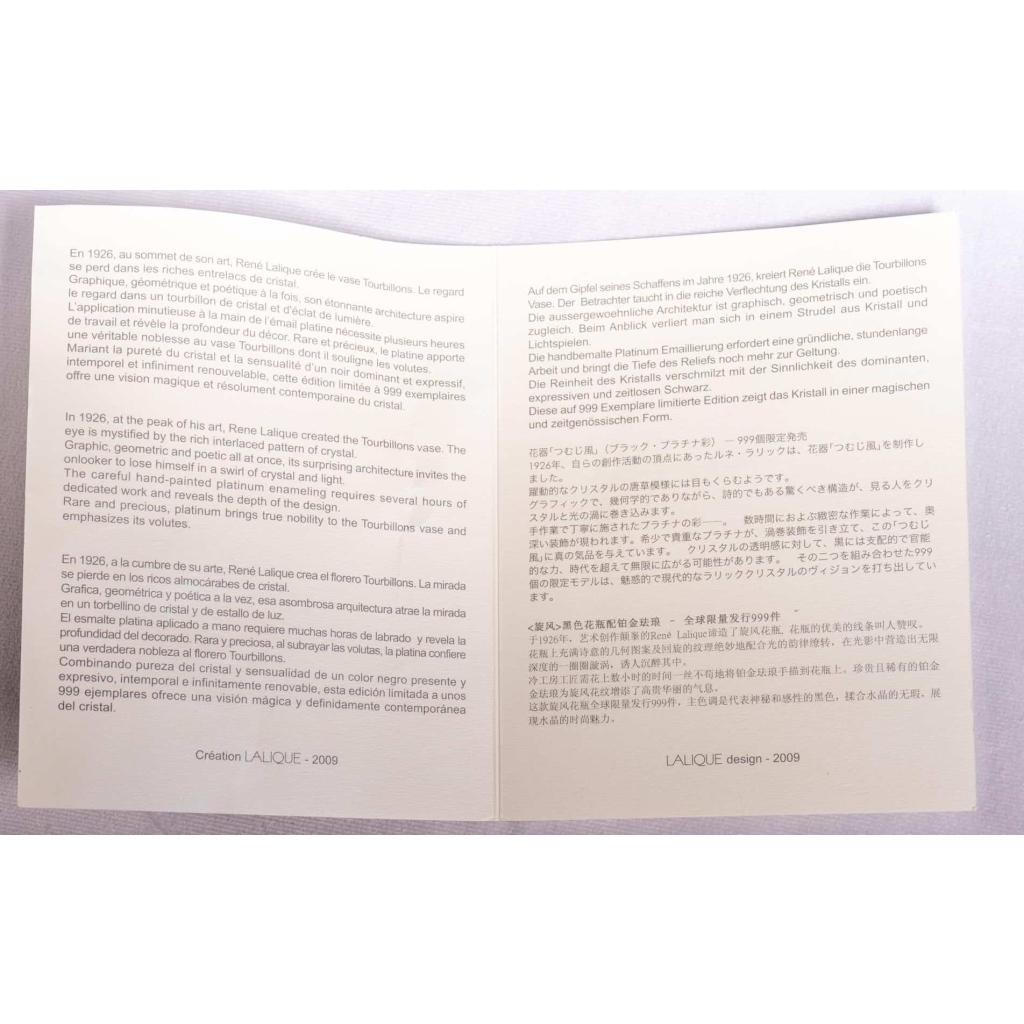 En 1926, au sommet de son art, René Lalique crée le vase Tourbillons. Le regard
se perd dans les riches entrelacs de cristal.
Graphique, géométrique et poétique à la fois, son étonnante architecture aspire
le regard dans un tourbillon de cristal et d'éclat de lumière.
L'application minutieuse à la main de l'émail platine nécessite plusieurs heures
de travail et révèle la profondeur du décor. Rare et précieux, le platine apporte
une véritable noblesse au vase Tourbillons dont il souligne les volutes.
Mariant la pureté du cristal et la sensualité d'un noir dominant et expressif,
intemporel et infiniment renouvelable, cette édition limitée à 999 exemplaires
offre une vision magique et résolument contemporaine du cristal.
In 1926, at the peak of his art, Rene Lalique created the Tourbillons vase. The
eye is mystified by the rich interlaced pattern of crystal.
Graphic, geometric and poetic all at once, its surprising architecture invites the
onlooker to lose himself in a swirl of crystal and light.
The careful hand-painted platinum enameling requires several hours of
dedicated work and reveals the depth of the design.
Rare and precious, platinum brings true nobility to the Tourbillons vase and
emphasizes its volutes.
En 1926, a la cumbre de su arte, René Lalique crea el florero Tourbillons. La mirada
se pierde en los ricos almocárabes de cristal.
Grafica, geométrica y poética a la vez, esa asombrosa arquitectura atrae la mirada
en un torbellino de cristal y de estallo de luz.
El esmalte platina aplicado a mano requiere muchas horas de labrado y revela la
profundidad del decorado. Rara y preciosa, al subrayar las volutas, la platina confiere
una verdadera nobleza al florero Tourbillons.
Combinando pureza del cristal y sensualidad de un color negro presente y
expresivo, intemporal e infinitamente renovable, esta edición limitada a unos
999 ejemplares ofrece una visión mágica y definidamente contemporánea
del cristal.
Création LALIQUE - 2009
Auf dem Gipfel seines Schaffens im Jahre 1926, kreiert René Lalique die Tourbillons
Vase. Der Betrachter taucht in die reiche Verflechtung des Kristalls ein.
Die aussergewoehnliche Architektur ist graphisch, geometrisch und poetisch
zugleich. Beim Anblick verliert man sich in einem Strudel aus Kristall und
Lichtspielen.
Die handbemalte Platinum Emaillierung erfordert eine gründliche, stundenlange
Arbeit und bringt die Tiefe des Reliefs noch mehr zur Geltung.
Die Reinheit des Kristalls verschmilzt mit der Sinnlichkeit des dominanten,
expressiven und zeitlosen Schwarz.
Diese auf 999 Exemplare limitierte Edition zeigt das Kristall in einer magischen
und zeitgenössischen Form.
花器「つむじ風」（ブラック・プラチナ彩） ― 999個限定発売
1926年、自らの創作活動の頂点にあったルネ・ラリックは、花器「つむじ風」を制作し
ました。
躍動的なクリスタルの唐草模様には目もくらむようです。
グラフィックで、幾何学的でありながら、詩的でもある驚くべき構造が、見る人をクリ
スタルと光の渦に巻き込みます。
手作業で丁寧に施されたプラチナの彩――。 数時間におよぶ緻密な作業によって、奥
深い装飾が現われます。希少で貴重なプラチナが、渦巻装飾を引き立て、この「つむじ
風」に真の気品を与えています。 クリスタルの透明感に対して、黒には支配的で官能
的な力、時代を超えて無限に広がる可能性があります。 その二つを組み合わせた999
個の限定モデルは、魅惑的で現代的なラリッククリスタルのヴィジョンを打ち出してい
ます。
<旋风>黑色花瓶配铂金珐琅 - 全球限量发行999件
于1926年，艺术创作颠峯的René Lalique缔造了旋风花瓶，花瓶的优美的线条叫人赞叹。
花瓶上充满诗意的几何图案及回旋的纹理绝妙地配合光的韵律缭转，在光影中营造出无限
深度的一圈圈漩涡，诱人沉醉其中。
冷工房工匠需花上数小时的时间一丝不苟地将铂金珐琅手描到花瓶上。珍贵且稀有的铂金
金珐琅为旋风花纹增添了高贵华丽的气息。
这款旋风花瓶全球限量发行999件，主色调是代表神秘和感性的黑色，揉合水晶的无瑕，展
现水晶的时尚魅力。
LALIQUE design - 2009